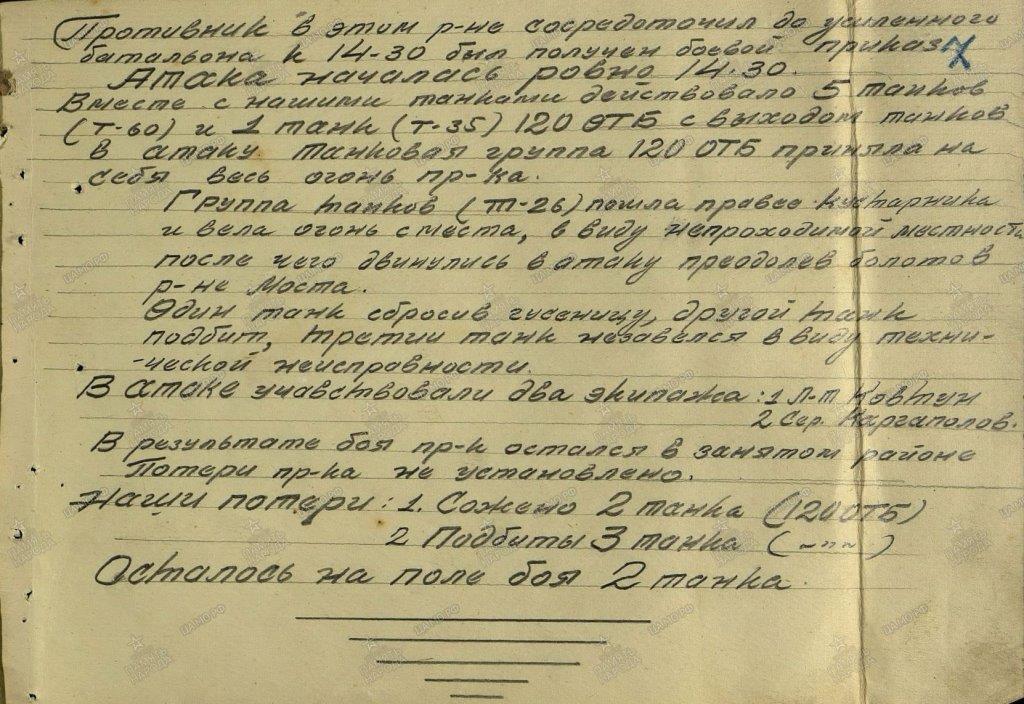 Противник в этом р-не сосредоточил до усиленного
батальона к 14-30 был получен боевой приказ
Атака началась ровно 14.30.
Вместе с нашими танками действовало 5 танков
(Т-60) и 1 танк (Т-35) 120 ОТБ с выходом танков
в атаку танковая группа 120 ОТБ приняла на
себя весь огонь пр-ка.
Группа танков (Т-26) пошла правее кустарника
и вела огонь с места, в виду непроходимой местности
после чего двинулись в атаку преодолев болотов
р-не моста.
Один танк сбросив гусеницу, другой танк
подбит, третий танк незавелся в виду техни-
-ческой неисправности.
В атаке учавствовали два экипажа: 1 Л-т Ковтун
2 Сер. Каргаполов.
В результате боя пр-к остался в занятом районе
Потери пр-ка не установлено.
Наши потери: 1. Сожено 2 танка (120 ОТБ)
2 Подбиты 3 танка (-"-)
Осталось на поле боя 2 танка.